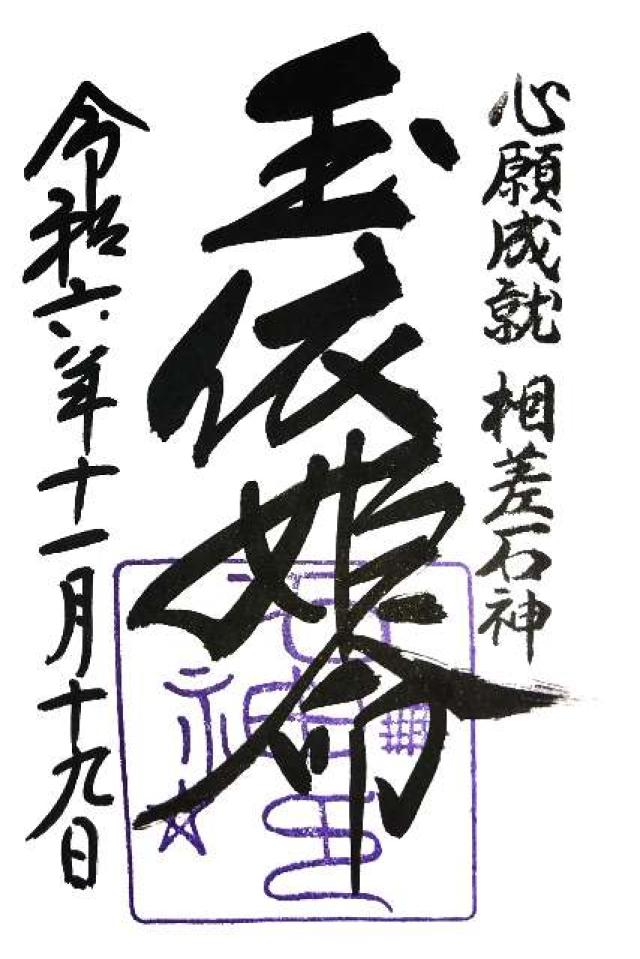 心願成就 相差石神
玉依姫命
令和六年十一月十九日
石神さん